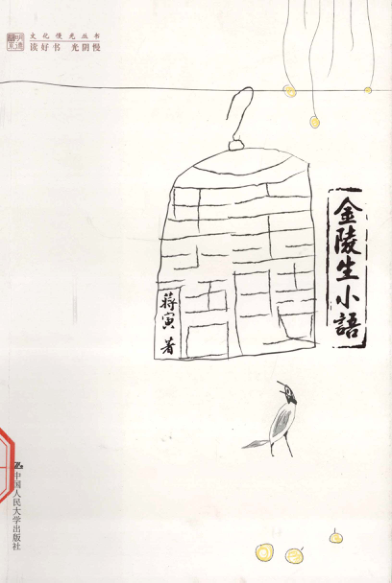 文化慢光丛书
读好书 光阴慢
金陵生小語
蔣寅 著
中国人民大学出版社